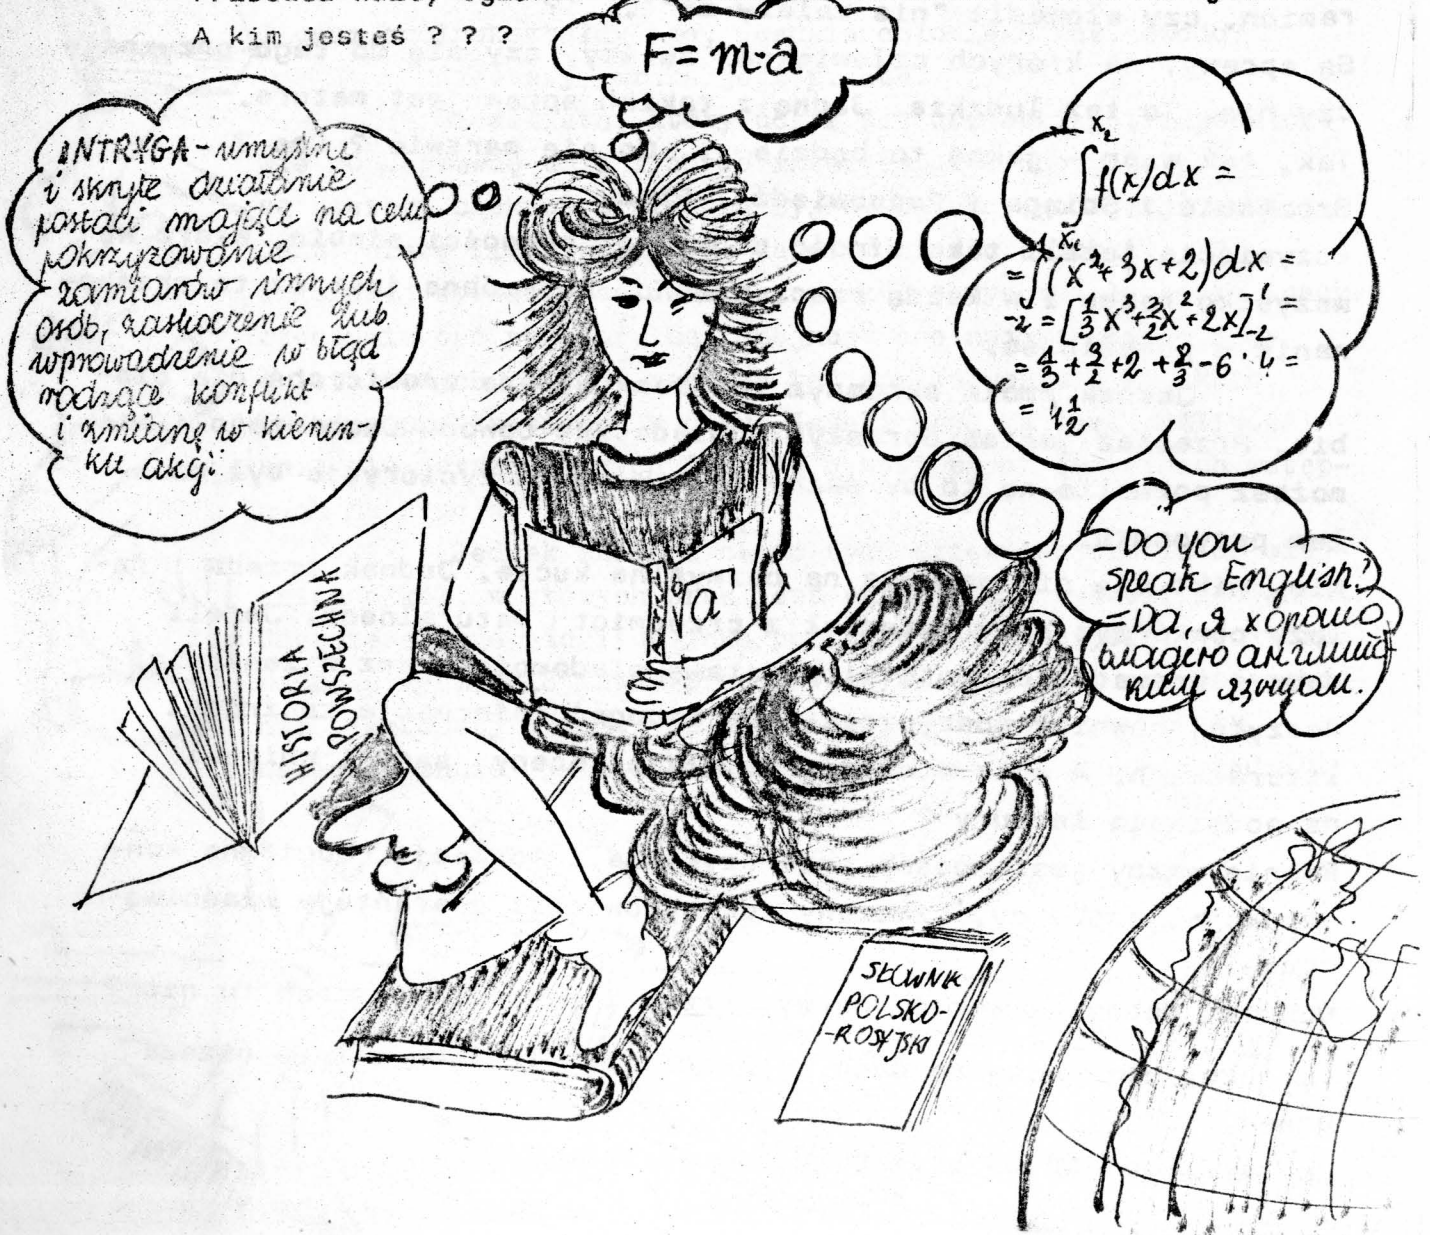 A kim jesteś ? ? ?
F = m·a
INTRYGA - umyślne
i skryte działanie
postaci mające na celu
pokrzyżowanie
zamiarów innych
osób, zaskoczenie lub
wprowadzenie w błąd
rodzące konflikt
i zmianę w kierun-
ku akcji
x₂
∫ f(x)dx =
x₁
= ∫ (x²+3x+2)dx =
-2 = [⅓x³+3/2x²+2x]¹₋₂ =
+ 3/2 + 2 + 8/3 - 6 · 4 =
= 4½
- Do you
speak English?
= Da, я хорошо
владею английс-
ким языцом.
√a
HISTORIA
POWSZECHNA
SŁOWNIK
POLSKO-
-ROSYJSKI